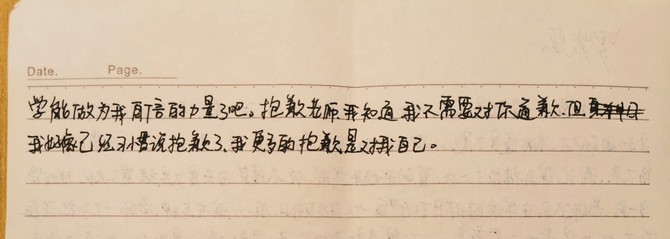 Date.      Page.
学能做为我自信的力量了吧。抱歉老师我知道我不需要对你道歉.但
我好像已经习惯说抱歉了、我更多的抱歉是对我自己。